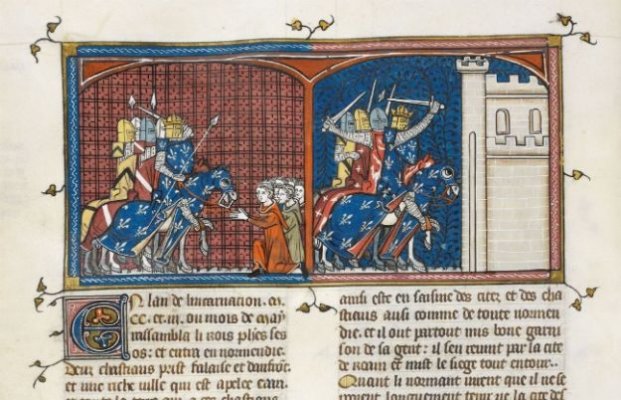 En lan de lincarnation .m.
.cc. et .iii. ou mois de may
rassambla li rois phes ses
os: et entra en normendie.
Deuz chastiaus prist falaise et danfront.
et une riche uille qui est apelee cain
et toute la terre qui a ces chastiaus
ausi est en saisine des citez et des cha
stiaus ausi comme de toute normen
die. et il out partout mis bone garni
son de sa gent: il sen reuint par la cite
de roam et mist le siege tout entour.
Quant li normant uirent que il ne se
longuement tenir ne la cite des